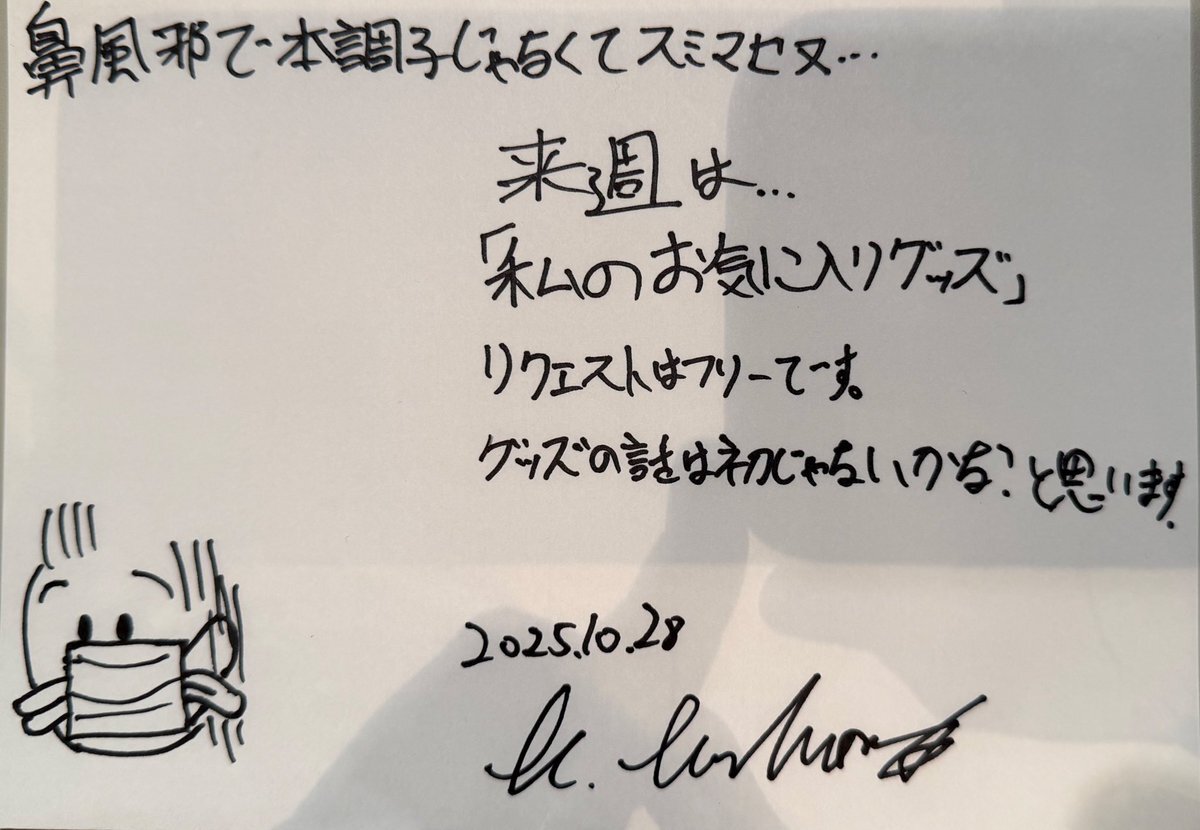 鼻風邪で本調子じゃなくてスミマセヌ…
来週は…
「私のお気に入りグッズ」
リクエストはフリーです。
グッズの話は初じゃないかな?と思います.
2025.10.28